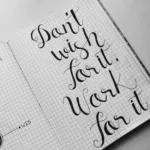 Don't
wish
for it,
Work
for it